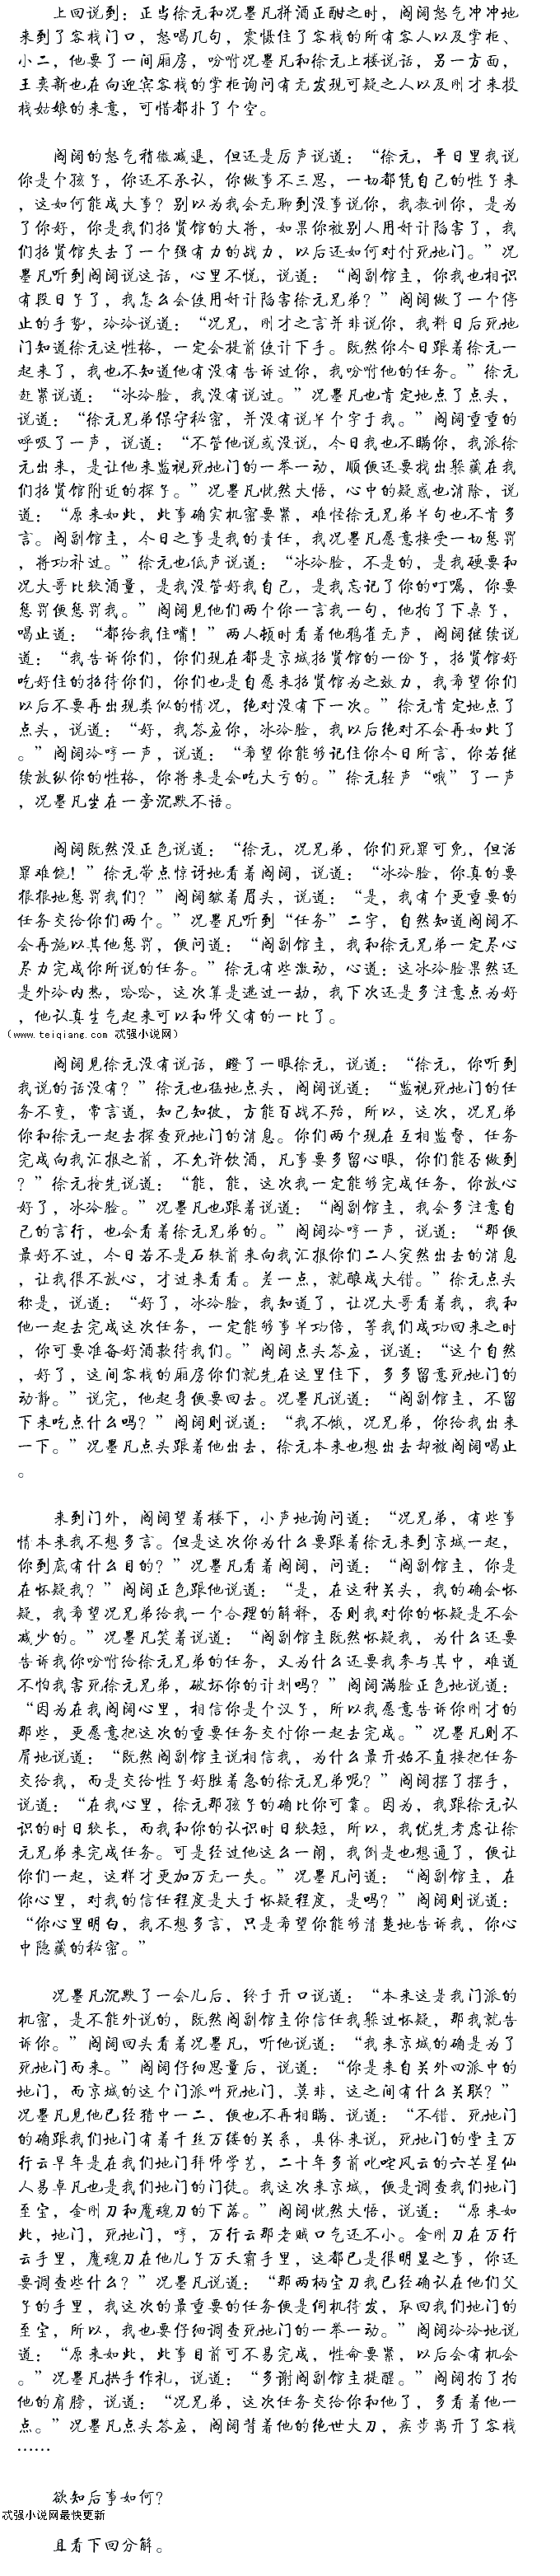 上回说到：正当徐元和况墨凡拼酒正酣之时，阎阔怒气冲冲地
来到了客栈门口，怒喝几句，震慑住了客栈的所有客人以及掌柜、
小二，他要了一间厢房，吩咐况墨凡和徐元上楼说话，另一方面，
王奕新也在向迎宾客栈的掌柜询问有无发现可疑之人以及刚才来投
栈姑娘的来意，可惜都扑了个空。
阎阔的怒气稍微减退，但还是厉声说道：“徐元，平日里我说
你是个孩子，你还不承认，你做事不三思，一切都凭自己的性子来
，这如何能成大事？别以为我会无聊到没事说你，我教训你，是为
了你好，你是我们招贤馆的大将，如果你被别人用奸计陷害了，我
们招贤馆失去了一个强有力的战力，以后还如何对付死地门。”况
墨凡听到阎阔说这话，心里不悦，说道：“阎副馆主，你我也相识
有段日子了，我怎么会使用奸计陷害徐元兄弟？”阎阔做了一个停
止的手势，冷冷说道：“况兄，刚才之言并非说你，我料日后死地
门知道徐元这性格，一定会提前使计下手。既然你今日跟着徐元一
起来了，我也不知道他有没有告诉过你，我吩咐他的任务。”徐元
赶紧说道：“冰冷脸，我没有说过。”况墨凡也肯定地点了点头，
说道：“徐元兄弟保守秘密，并没有说半个字于我。”阎阔重重的
呼吸了一声，说道：“不管他说或没说，今日我也不瞒你，我派徐
元出来，是让他来监视死地门的一举一动，顺便还要找出躲藏在我
们招贤馆附近的探子。”况墨凡恍然大悟，心中的疑惑也消除，说
道：“原来如此，此事确实机密要紧，难怪徐元兄弟半句也不肯多
言。阎副馆主，今日之事是我的责任，我况墨凡愿意接受一切惩罚
，将功补过。”徐元也低声说道：“冰冷脸，不是的，是我硬要和
况大哥比较酒量，是我没管好我自己，是我忘记了你的叮嘱，你要
惩罚便惩罚我。”阎阔见他们两个你一言我一句，他拍了下桌子，
喝止道：“都给我住嘴！”两人顿时看着他鸦雀无声，阎阔继续说
道：“我告诉你们，你们现在都是京城招贤馆的一份子，招贤馆好
吃好住的招待你们，你们也是自愿来招贤馆为之效力，我希望你们
以后不要再出现类似的情况，绝对没有下一次。”徐元肯定地点了
点头，说道：“好，我答应你，冰冷脸，我以后绝对不会再如此了
。”阎阔冷哼一声，说道：“希望你能够记住你今日所言，你若继
续放纵你的性格，你将来是会吃大亏的。”徐元轻声“哦”了一声
，况墨凡坐在一旁沉默不语。
阎阔既然没正色说道：“徐元，况兄弟，你们死罪可免，但活
罪难饶！”徐元带点惊讶地看着阎阔，说道：“冰冷脸，你真的要
狠狠地惩罚我们？”阎阔皱着眉头，说道：“是，我有个更重要的
任务交给你们两个。”况墨凡听到“任务”二字，自然知道阎阔不
会再施以其他惩罚，便问道：“阎副馆主，我和徐元兄弟一定尽心
尽力完成你所说的任务。”徐元有些激动，心道：这冰冷脸果然还
是外冷内热，哈哈，这次算是逃过一劫，我下次还是多注意点为好
，他认真生气起来可以和师父有的一比了。
（www.teiqiang.com 忒强小说网）
阎阔见徐元没有说话，瞪了一眼徐元，说道：“徐元，你听到
我说的话没有？”徐元也猛地点头，阎阔说道：“监视死地门的任
务不变，常言道，知己知彼，方能百战不殆，所以，这次，况兄弟
你和徐元一起去探查死地门的消息。你们两个现在互相监督，任务
完成向我汇报之前，不允许饮酒，凡事要多留心眼，你们能否做到
？”徐元抢先说道：“能，能，这次我一定能够完成任务，你放心
好了，冰冷脸。”况墨凡也跟着说道：“阎副馆主，我会多注意自
己的言行，也会看着徐元兄弟的。”阎阔冷哼一声，说道：“那便
最好不过，今日若不是石轶前来向我汇报你们二人突然出去的消息
，让我很不放心，才过来看看。差一点，就酿成大错。”徐元点头
称是，说道：“好了，冰冷脸，我知道了，让况大哥看着我，我和
他一起去完成这次任务，一定能够事半功倍，等我们成功回来之时
，你可要准备好酒款待我们。”阎阔点头答应，说道：“这个自然
，好了，这间客栈的厢房你们就先在这里住下，多多留意死地门的
动静。”说完，他起身便要回去。况墨凡说道：“阎副馆主，不留
下来吃点什么吗？”阎阔则说道：“我不饿，况兄弟，你给我出来
一下。”况墨凡点头跟着他出去，徐元本来也想出去却被阎阔喝止
。
来到门外，阎阔望着楼下，小声地询问道：“况兄弟，有些事
情本来我不想多言。但是这次你为什么要跟着徐元来到京城一起，
你到底有什么目的？”况墨凡看着阎阔，问道：“阎副馆主，你是
在怀疑我？”阎阔正色跟他说道：“是，在这种关头，我的确会怀
疑，我希望况兄弟给我一个合理的解释，否则我对你的怀疑是不会
减少的。”况墨凡笑着说道：“阎副馆主既然怀疑我，为什么还要
告诉我你吩咐给徐元兄弟的任务，又为什么还要我参与其中，难道
不怕我害死徐元兄弟，破坏你的计划吗？”阎阔满脸正色地说道：
“因为在我阎阔心里，相信你是个汉子，所以我愿意告诉你刚才的
那些，更愿意把这次的重要任务交付你一起去完成。”况墨凡则不
屑地说道：“既然阎副馆主说相信我，为什么最开始不直接把任务
交给我，而是交给性子好胜着急的徐元兄弟呢？”阎阔摆了摆手，
说道：“在我心里，徐元那孩子的确比你可靠。因为，我跟徐元认
识的时日较长，而我和你的认识时日较短，所以，我优先考虑让徐
元兄弟来完成任务。可是经过他这么一闹，我倒是也想通了，便让
你们一起，这样才更加万无一失。”况墨凡问道：“阎副馆主，在
你心里，对我的信任程度是大于怀疑程度，是吗？”阎阔则说道：
“你心里明白，我不想多言，只是希望你能够清楚地告诉我，你心
中隐藏的秘密。”
况墨凡沉默了一会儿后，终于开口说道：“本来这是我门派的
机密，是不能外说的，既然阎副馆主你信任我躲过怀疑，那我就告
诉你。”阎阔回头看着况墨凡，听他说道：“我来京城的确是为了
死地门而来。”阎阔仔细思量后，说道：“你是来自关外四派中的
地门，而京城的这个门派叫死地门，莫非，这之间有什么关联？”
况墨凡见他已经猜中一二，便也不再相瞒，说道：“不错，死地门
的确跟我们地门有着千丝万缕的关系，具体来说，死地门的堂主万
行云早年是在我们地门拜师学艺，二十年多前叱咤风云的六芒星仙
人易卓凡也是我们地门的门徒。我这次来京城，便是调查我们地门
至宝，金刚刀和魔魂刀的下落。”阎阔恍然大悟，说道：“原来如
此，地门，死地门，哼，万行云那老贼口气还不小。金刚刀在万行
云手里，魔魂刀在他儿子万天霸手里，这都已是很明显之事，你还
要调查些什么？”况墨凡说道：“那两柄宝刀我已经确认在他们父
子的手里，我这次的最重要的任务便是伺机待发，取回我们地门的
至宝，所以，我也要仔细调查死地门的一举一动。”阎阔冷冷地说
道：“原来如此，此事目前可不易完成，性命要紧，以后会有机会
。”况墨凡拱手作礼，说道：“多谢阎副馆主提醒。”阎阔拍了拍
他的肩膀，说道：“况兄弟，这次任务交给你和他了，多看着他一
点。”况墨凡点头答应，阎阔背着他的绝世大刀，疾步离开了客栈
……
欲知后事如何？
忒强小说网最快更新
且看下回分解。